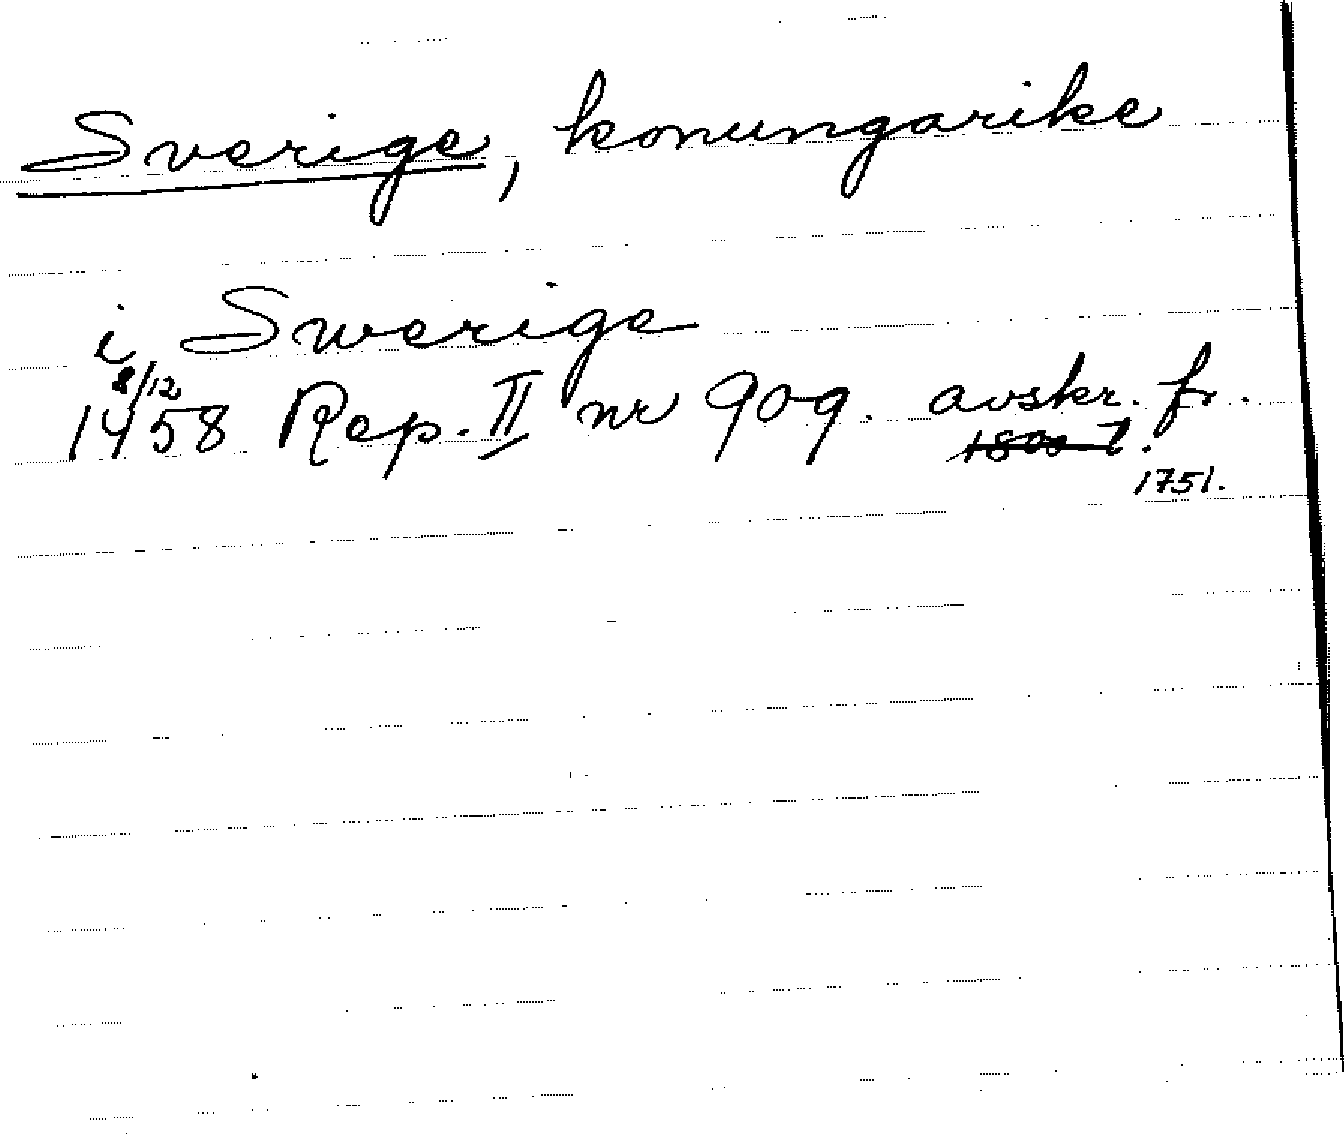 Sverige, konungarike
i Swerige
8/12
1458 Rep. II nr 909. avskr. fr.
1800-t.
1751.